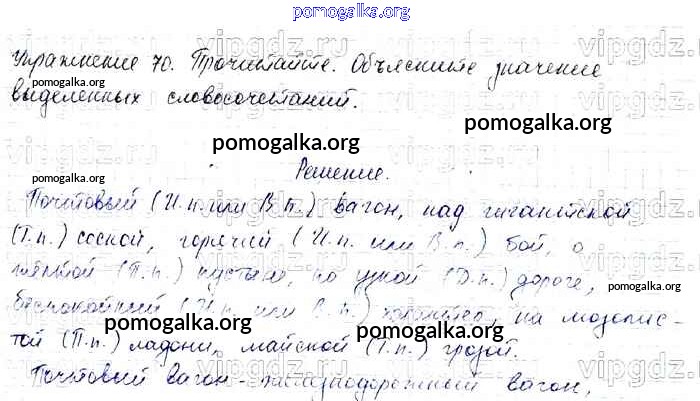 pomogalka.org
Упражнение 70. Прочитайте. Объясните значение
pomogalka.org
выделенных словосочетаний.
pomogalka.org
pomogalka.org
Решение.
pomogalka.org
Почтовый (И.п. или В.п.) вагон, над гигантской
(Т.п.) сосной, горячей (И.п. или В.п.) бой, о
(П.п.) пустыне, по узкой (Д.п.) дороге,
pomogalka.org
беспокойный (И.п. или В.п.) характер, на мозолис-
pomogalka.org
pomogalka.org
той (П.п.) ладони, майской (Т.п.) грозой.
pomogalka.org
Почтовый вагон - железнодорожный вагон,